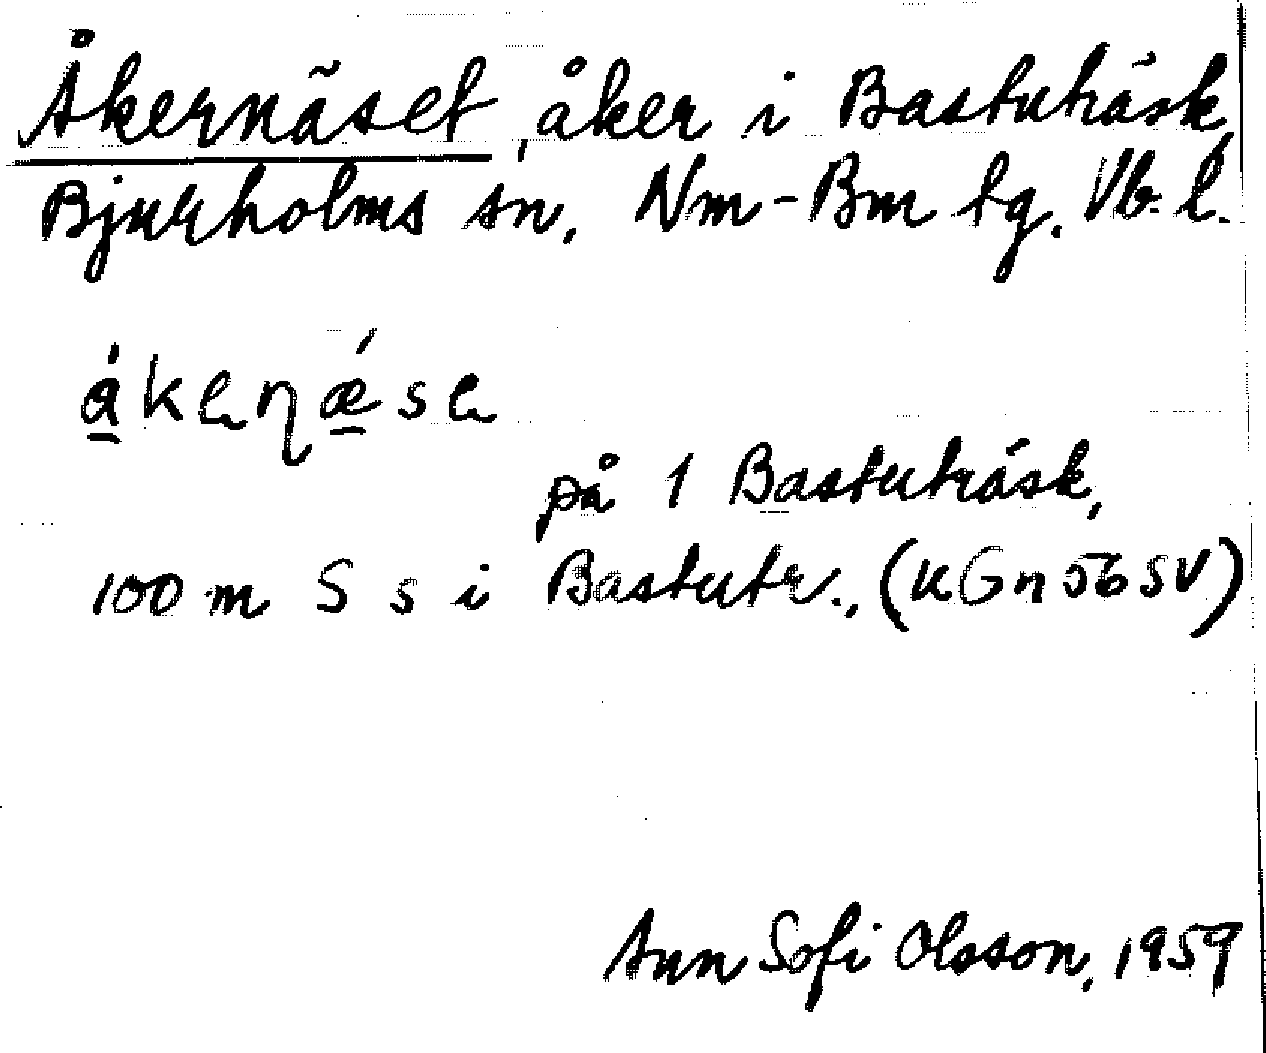 Åkernäset, åker i Bastuträsk,
Bjurholms sn, Nm-Bm tg. Vb. l.
á̱keɳǽ̱se
på 1 Bastuträsk,
100 m S s i Bastutr., (KGn56SV)
Ann Sofi Olsson, 1959